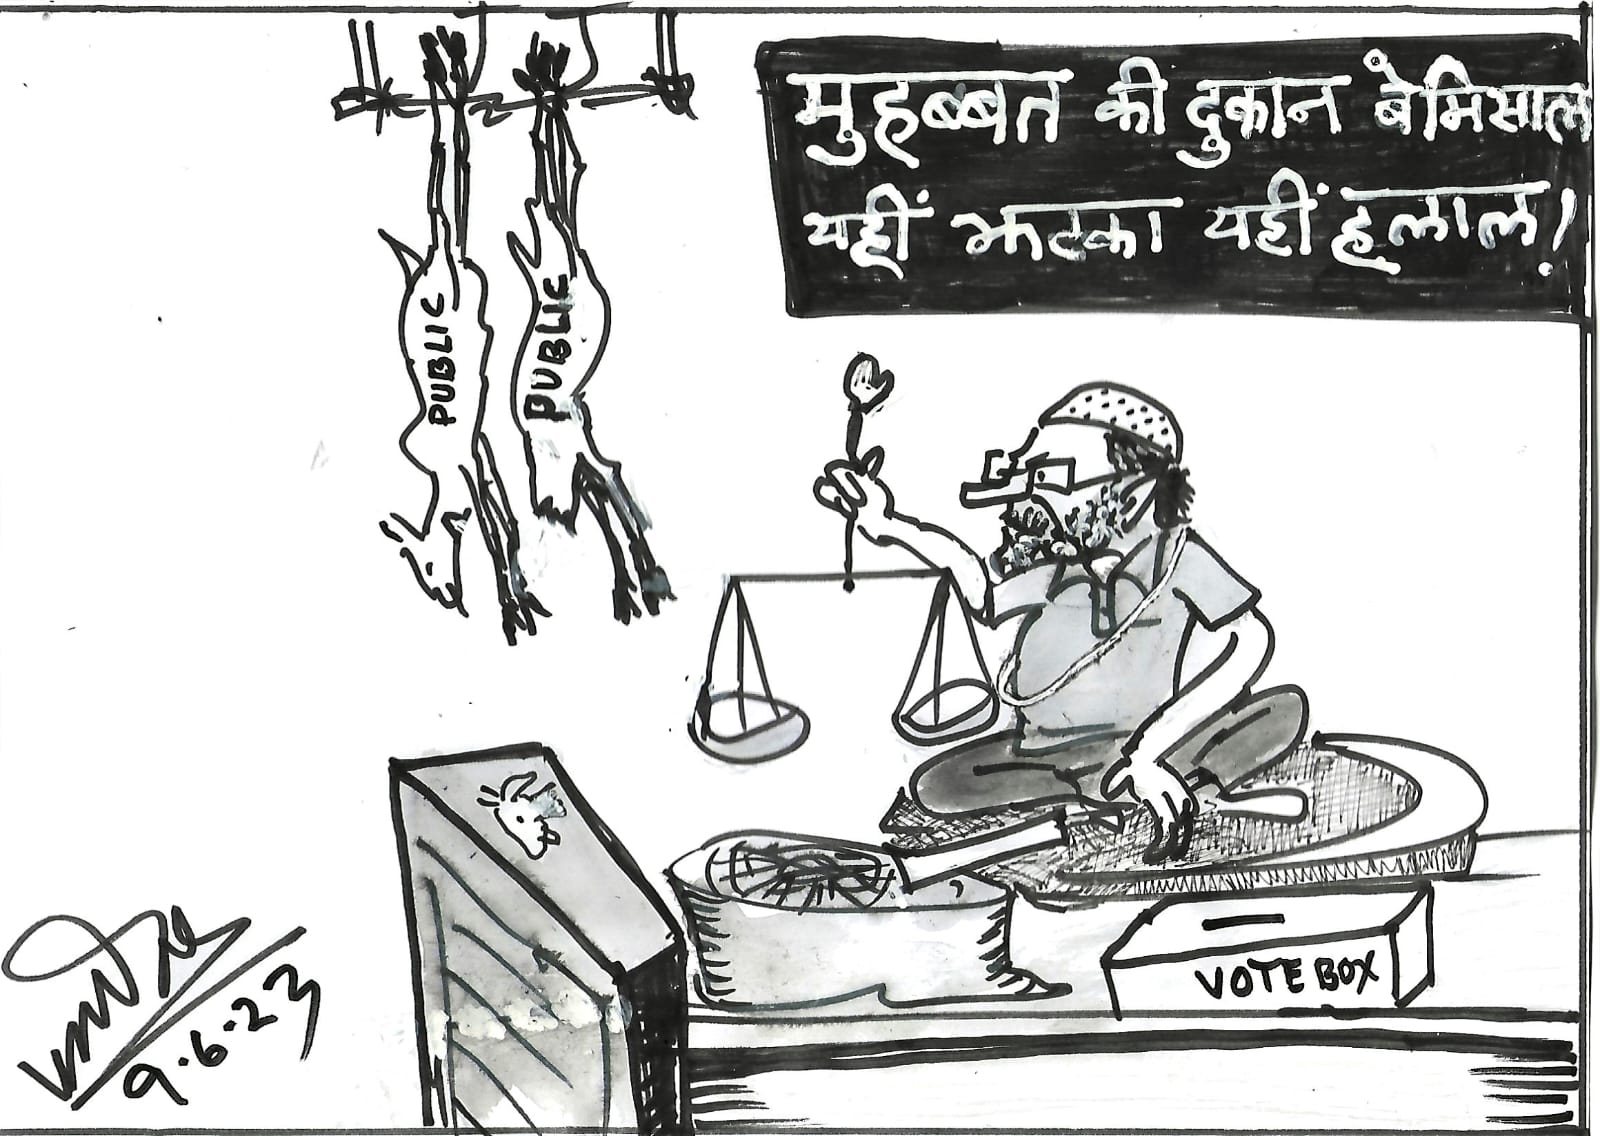 मुहब्बत की दुकान बेंमिसाल
यहीं झटका यहीं हलाल!
PUBLIC
PUBLIC
VOTE BOX
9.6.23